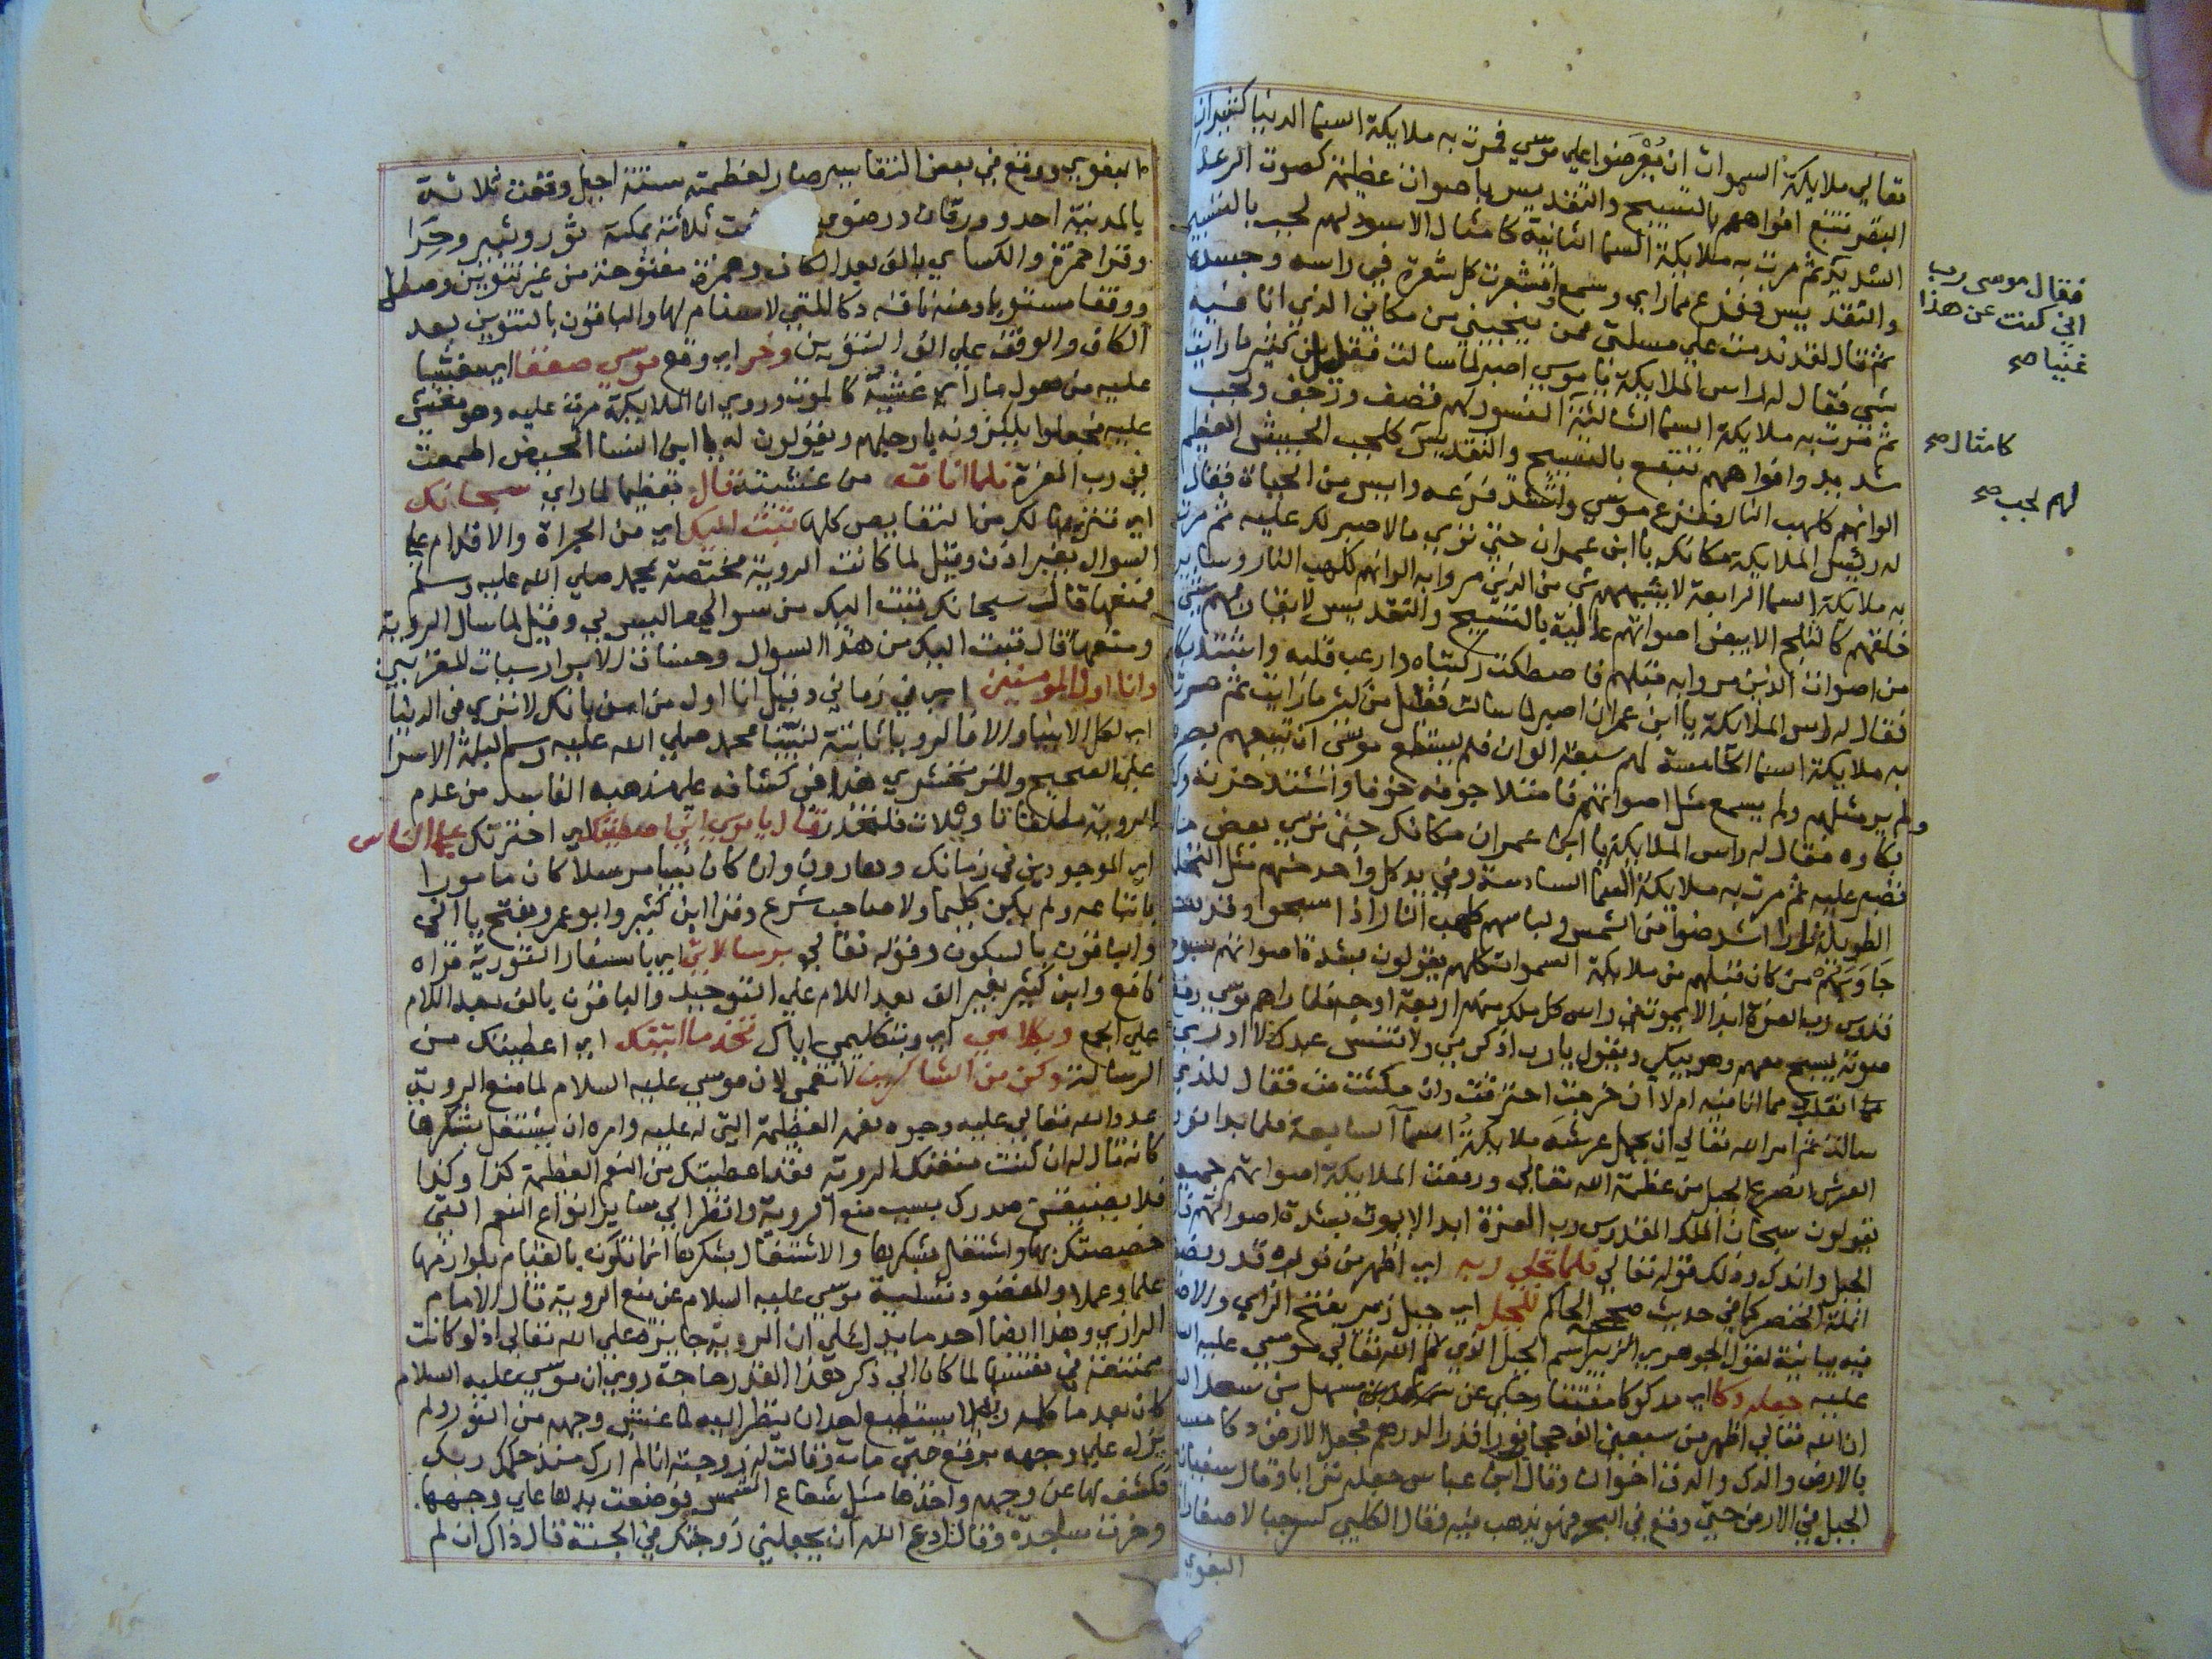 تعالي ملايكة السموات ان يُعْرَضوا علي موسي فمرت به ملايكة السما الدنيا كثيران
البقر تنبع افواههم بالتسبيح والتقديس باصوات عظيمة كصوت الرعد
الشديد ثم مرت به ملايكة السما الثانية كامثال الاسود لهم لجب بالتسبيح
والتقديس ففزع مما راي وسمع واقشعرت كل شعرة في راسه وجسده
ثم قال لقد ندمت علي مسلتي فهل ينجيني من مكاني الذي انا فيه
شي فقال له راس الملايكة يا موسي اصبر لما سالت فقليل من كثير ما رايت
ثم مرت به ملايكة السما الثالثة كالنسور لهم قصف ورجف ولجب
شديد وافواههم تنبع بالتسبيح والتقديس كلجب الجيش العظيم
الوانهم كلهب النار ففزع موسي واشتد فزعه وايس من الحياة فقال
له رئيس الملايكة مكانك يا ابن عمران حتي تري ما لا صبر لك عليه ثم مرت
به ملايكة السما الرابعة لا يشبههم شي من الذين مروا به الوانهم كلهب النار وساير
خلقهم كالثلج الابيض اصواتهم عالية بالتسبيح والتقديس لا يقاربهم شي
من اصوات الذين مروا به قبلهم فاصطكت ركبتاه وارعب قلبه واشتد بكاه
فقال له راس الملايكة يا ابن عمران اصبر لما سالت فقليل من كثير ما رايت ثم مرت
به ملايكة السما الخامسة لهم سبعة الوان فلم يستطع موسي ان يتبعهم بصره
ولم ير مثلهم ولم يسمع مثل اصواتهم فامتلا جوفه خوفا واشتد حزنه وكثر
بكاوه فقال له راس الملايكة يا ابن عمران مكانك حتي تري بعض ما لا
تصبر عليه ثم مرت به ملايكة السما السادسة وفي يد كل واحد منهم مثل النخلة
الطويلة نارا اشد ضوا من الشمس ولباسهم كلهب النار اذا سبحوا وقدسوا
جَاوَبَهُمْ من كان قبلهم من ملايكة السموات كلهم يقولون بشدة اصواتهم سبوح
قدوس رب العزة ابدا لا يموت في راس كل ملك منهم اربعة اوجه فلما راهم موسي رفع
صوته يسبح معهم وهو يبكي ويقول يا رب اذكرني ولا تنس عبدك لا ادري
انقلب مما انا فيه ام لا ان خرجت احترقت وان مكثت مت فقال للذي
سالت ثم امر الله تعالي ان يحمل عرشه ملايكة السما السابعة فلما بدا نور
العرش انصدع الجبل من عظمة الله تعالي ورفعت الملايكة اصواتهم جميعا
يقولون سبحان الملك القدوس رب العزة ابدا لا يموت بشدة اصواتهم فارتج
الجبل واندك وذلك قوله تعالي فلما تجلي ربه اي اظهر من نوره قدر نصف
انملة الخنصر كما في حديث صححه الحاكم للجبل اي جبل زبير بفتح الزاي والاضافة
فيه بيانية لقول الجوهري الزبير اسم الجبل الذي كلم الله تعالي موسي عليه السلام
عليه جعله دكا اي مدكوكا مفتتا وحكي عن سهل بن سعد
ان الله تعالي اظهر من سبعين الف حجاب نورا قدر الدرهم فجعل الارض دكا مستويا
بالارض والدك والدق اخوان وقال ابن عباس جعله ترابا وقال سفيان ساخ
الجبل في الارض حتي وقع في البحر فهو يذهب فيه وقال الكلبي كسر جبالا صغارا
البغوي
فقال موسى رب
اني كنت عن هذا
غنيا صح
كامثال صح
لهم لجب صح
البغوي ووقع في بعض التفاسير صار لعظمته ستة اجبل وقعت ثلاثة
بالمدينة احد وورقان ورضوي ووقعت ثلاثة بمكة ثور وثبير وحِرَا
وقرا حمزة والكساي بالف بعد الكاف وهمزة مفتوحة من غير تنوين وصلا
ووقفا مستويا ومنه ناقة دكا للتي لا سنام لها والباقون بالتنوين بعد
الكاف والوقف علي الف التنوين وخر اي وقع موسي صعقا اي مغشيا
عليه من هول ما راي غشية كالموت وروي ان الملايكة مرت عليه وهو مغشي
عليه فجعلوا يلكزونه بارجلهم ويقولون له يا ابن النسا الحيض اطمعت
في رب العزة فلما افاق من غشيته قال تعظيما لما راي سبحانك
اي تنزيها لك من النقايص كلها تبت اليك اي من الجراة والاقدام علي
السوال بغير اذن وقيل لما كانت الروية مختصة بمحمد صلي الله عليه وسلم
فمنعها قال سبحانك تبت اليك من سوالي ما ليس لي وقيل لما سال الروية
ومنعها قال تبت اليك من هذا السوال وحسنات الابرار سيات المقربين
وانا اول المومنين اي في زماني وقيل انا اول من امن بانك لا تري في الدنيا
اي لكل الانبيا والا فالرويا ثابتة لنبينا محمد صلي الله عليه وسلم ليلة الاسرا
علي الصحيح وللزمخشري هنا في كشافه علي مذهبه الفاسد من عدم
الروية مطلقا تاويلات فلتحذر قال يا موسي اني اصطفيتك اي اخترتك علي الناس
اي الموجودين في زمانك وهارون وان كان نبيا مرسلا كان مامورا
باتباعه ولم يكن كليما ولا صاحب شرع وقرا ابن كثير وابو عمرو بفتح يا اني
والباقون بالسكون وقوله تعالي برسالاتي اي باسفار التورية قراه
نافع وابن كثير بغير الف بعد اللام علي التوحيد والباقون بالف بعد اللام
علي الجمع وبكلامي اي وبتكليمي اياك فخذ ما اتيتك اي اعطيتك من
الرسالة وكن من الشاكرين لانعمي لان موسي عليه السلام لما منع الروية
عدد الله تعالي عليه وجوه نعمه العظيمة التي له عليه وامره ان يشتغل بشكرها
كانه قال له ان كنت منعتك الروية فقد اعطيتك من النعم العظيمة كذا وكذا
فلا يضيق صدرك بسبب منع الروية وانظر الي ساير انواع النعم التي
خصصتك بها واشتغل بشكرها والاشتغال بشكرها انما تكون بالقيام بلوازمها
علما وعملا والمقصود تسلية موسي عليه السلام عن منع الروية قال الامام
الرازي وهذا ايضا احد ما يدل علي ان الروية جايزة علي الله تعالي اذ لو كانت
ممتنعة في نفسها لما كان الي ذكر هذا القدر حاجة روي ان موسي عليه السلام
كان بعد ما كلمه ربه لا يستطيع احد ان ينظر اليه لما غشي وجهه من النور ولم
يزل علي وجهه برقع حتي مات وقالت له زوجته انا لم ارك منذ كلمك ربك
فكشف لها عن وجهه واخذها مثل شعاع الشمس فوضعت يدها علي وجهها
وخرت ساجدة وقالت ادع الله ان يجعلني زوجتك في الجنة قال ذاك ان لم